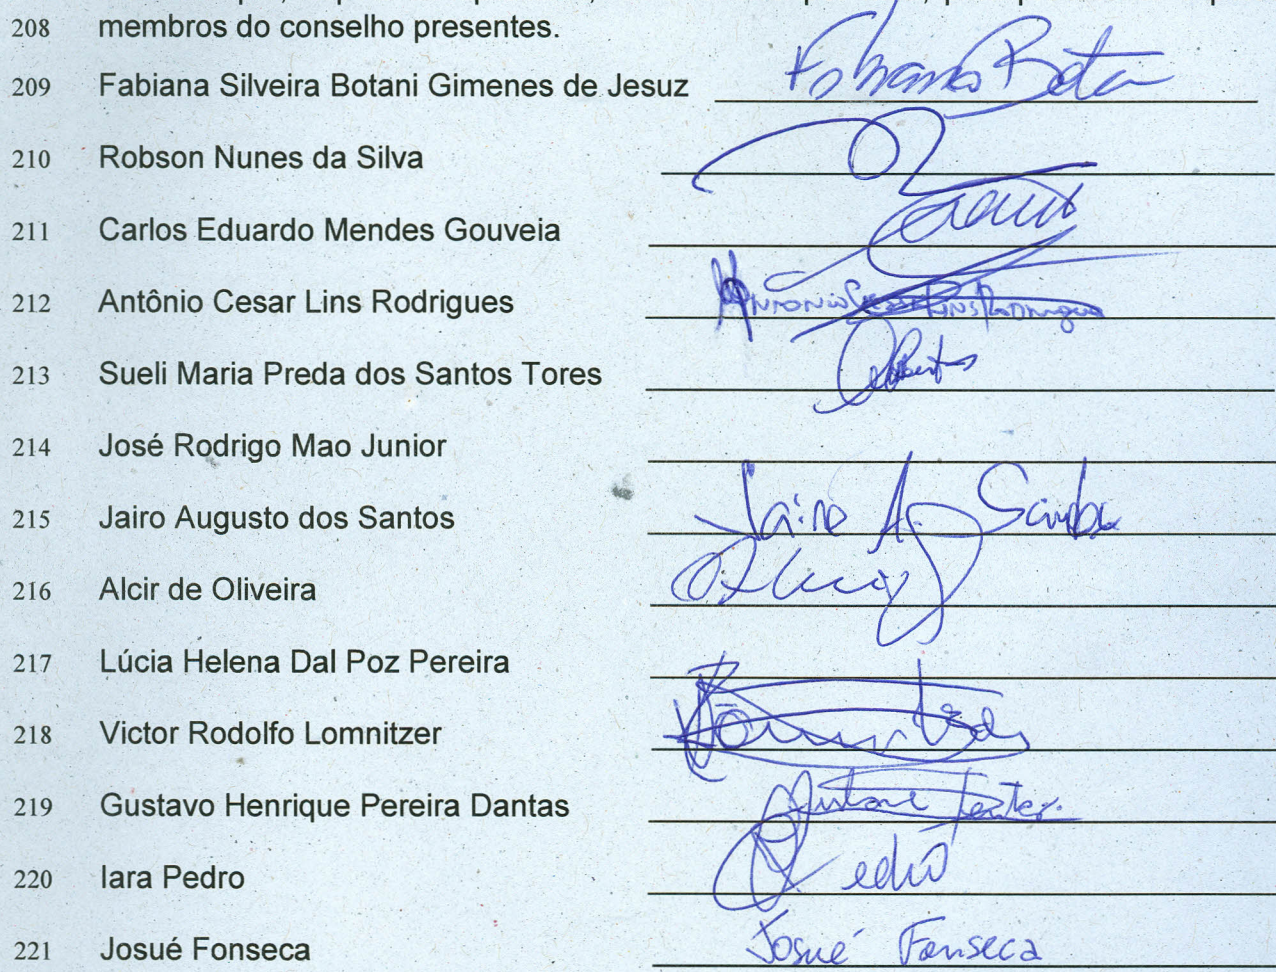 208 membros do conselho presentes.
209 Fabiana Silveira Botani Gimenes de Jesuz
210 Robson Nunes da Silva
211 Carlos Eduardo Mendes Gouveia
212 Antônio Cesar Lins Rodrigues Antonio Cesar Lins Rodrigues
213 Sueli Maria Preda dos Santos Tores
214 José Rodrigo Mao Junior
215 Jairo Augusto dos Santos Jairo A. Santos
216 Alcir de Oliveira
217 Lúcia Helena Dal Poz Pereira
218 Victor Rodolfo Lomnitzer
219 Gustavo Henrique Pereira Dantas
220 Iara Pedro Pedro
221 Josué Fonseca Josué Fonseca